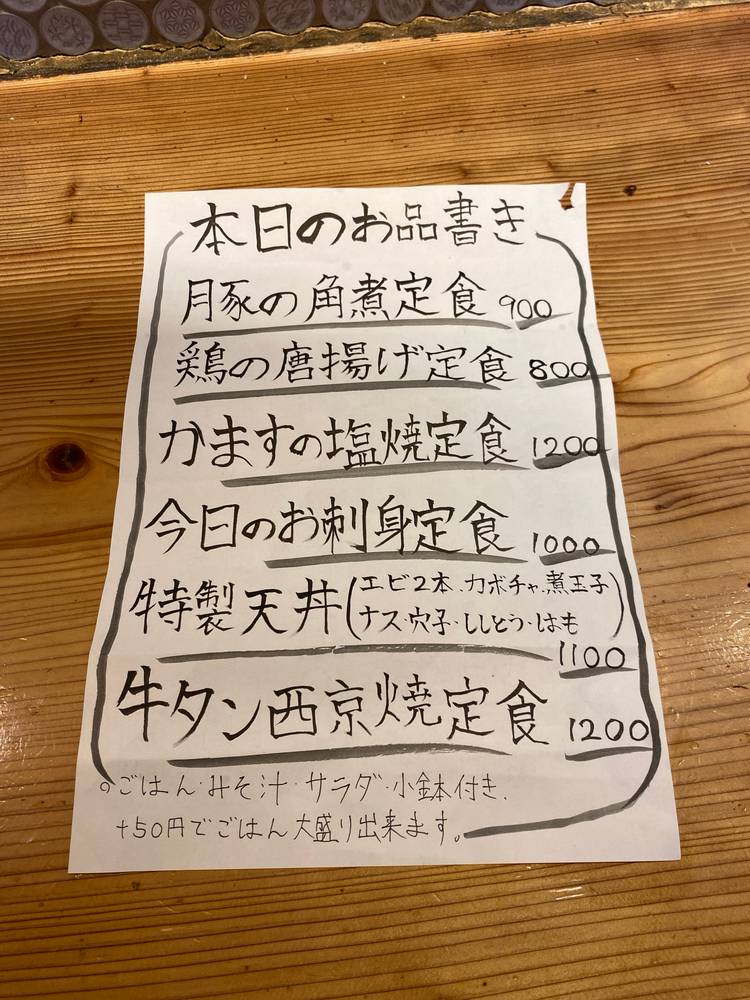 本日のお品書き
豚の角煮定食 900
鶏の唐揚げ定食 800
かますの塩焼定食 1200
今日のお刺身定食 1000
特製天丼(エビ2本.カボチャ.煮玉子
ナス・穴子・ししとう・はも)
1100
牛タン西京焼定食 1200
○ごはん・みそ汁・サラダ・小鉢付き.
+50円でごはん大盛り出来ます。